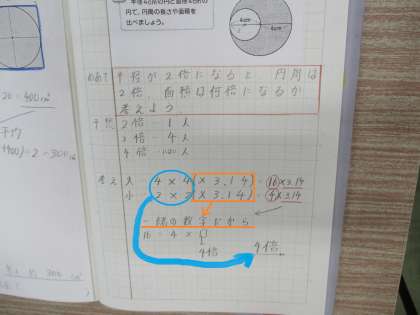 半径4cmの円と直径4cmの
円で、円周の長さや面積を
比べましょう。
4cm
めあて 半径が2倍になると 円周は
2倍、面積は何倍になるか
考えよう
予想 2倍 1人
3倍 4人
4倍
考え 大 4×4(×3.14)=16×3.14
小 2×2(×3.14)=4×3.14
一緒の数字だから
16=4×□
4倍
4倍
20=400
平均